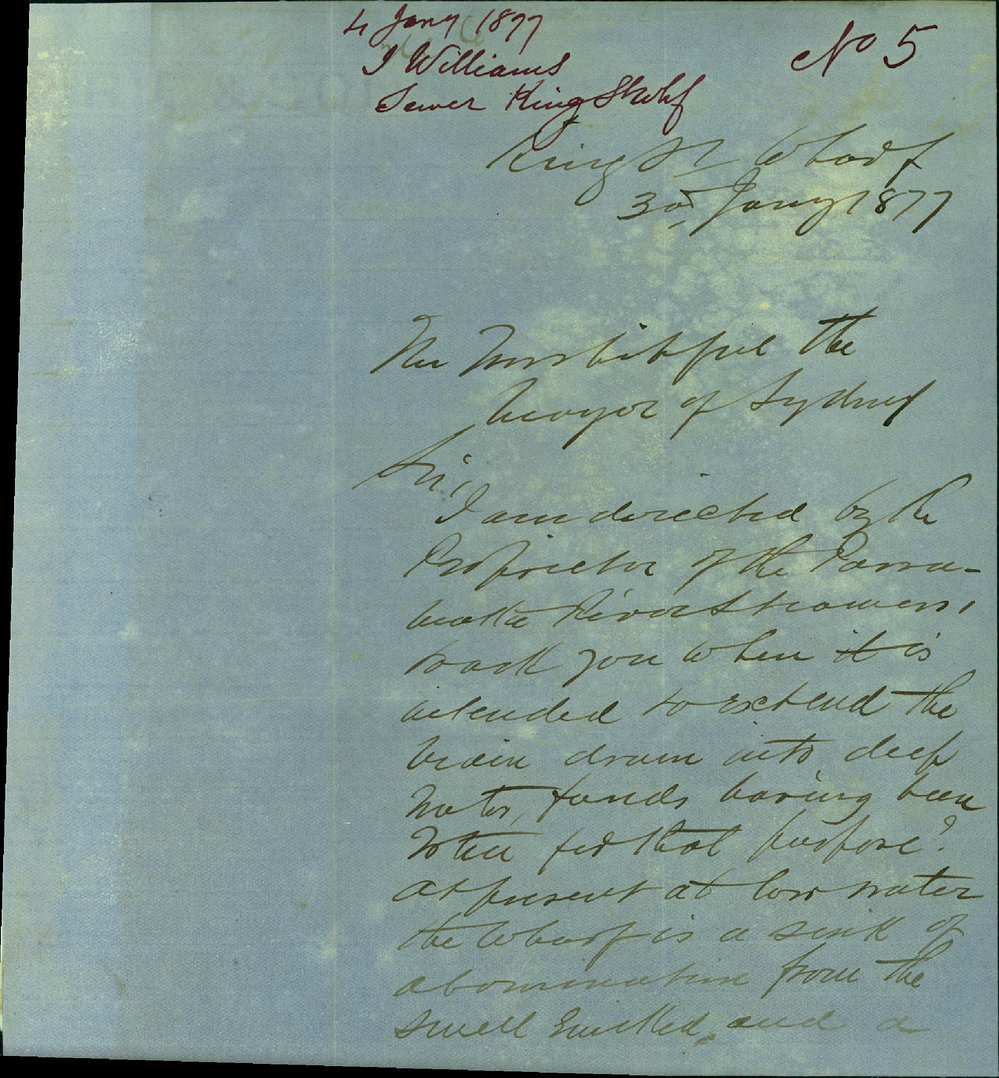 4 Jany 1877
J Williams
Sewer King St Whf
No 5
King St Wharf
3d Jany 1877
The Worshipful the
Mayor of Sydney
Sir,
I am directed by the
Proprietor of the Parra-
matta River Steamers,
to ask you when it is
intended to extend the
main drain into deep
water, funds having been
voted for that purpose?
At present at low water
the Wharf is a sink of
abomination from the
smell emitted, and a